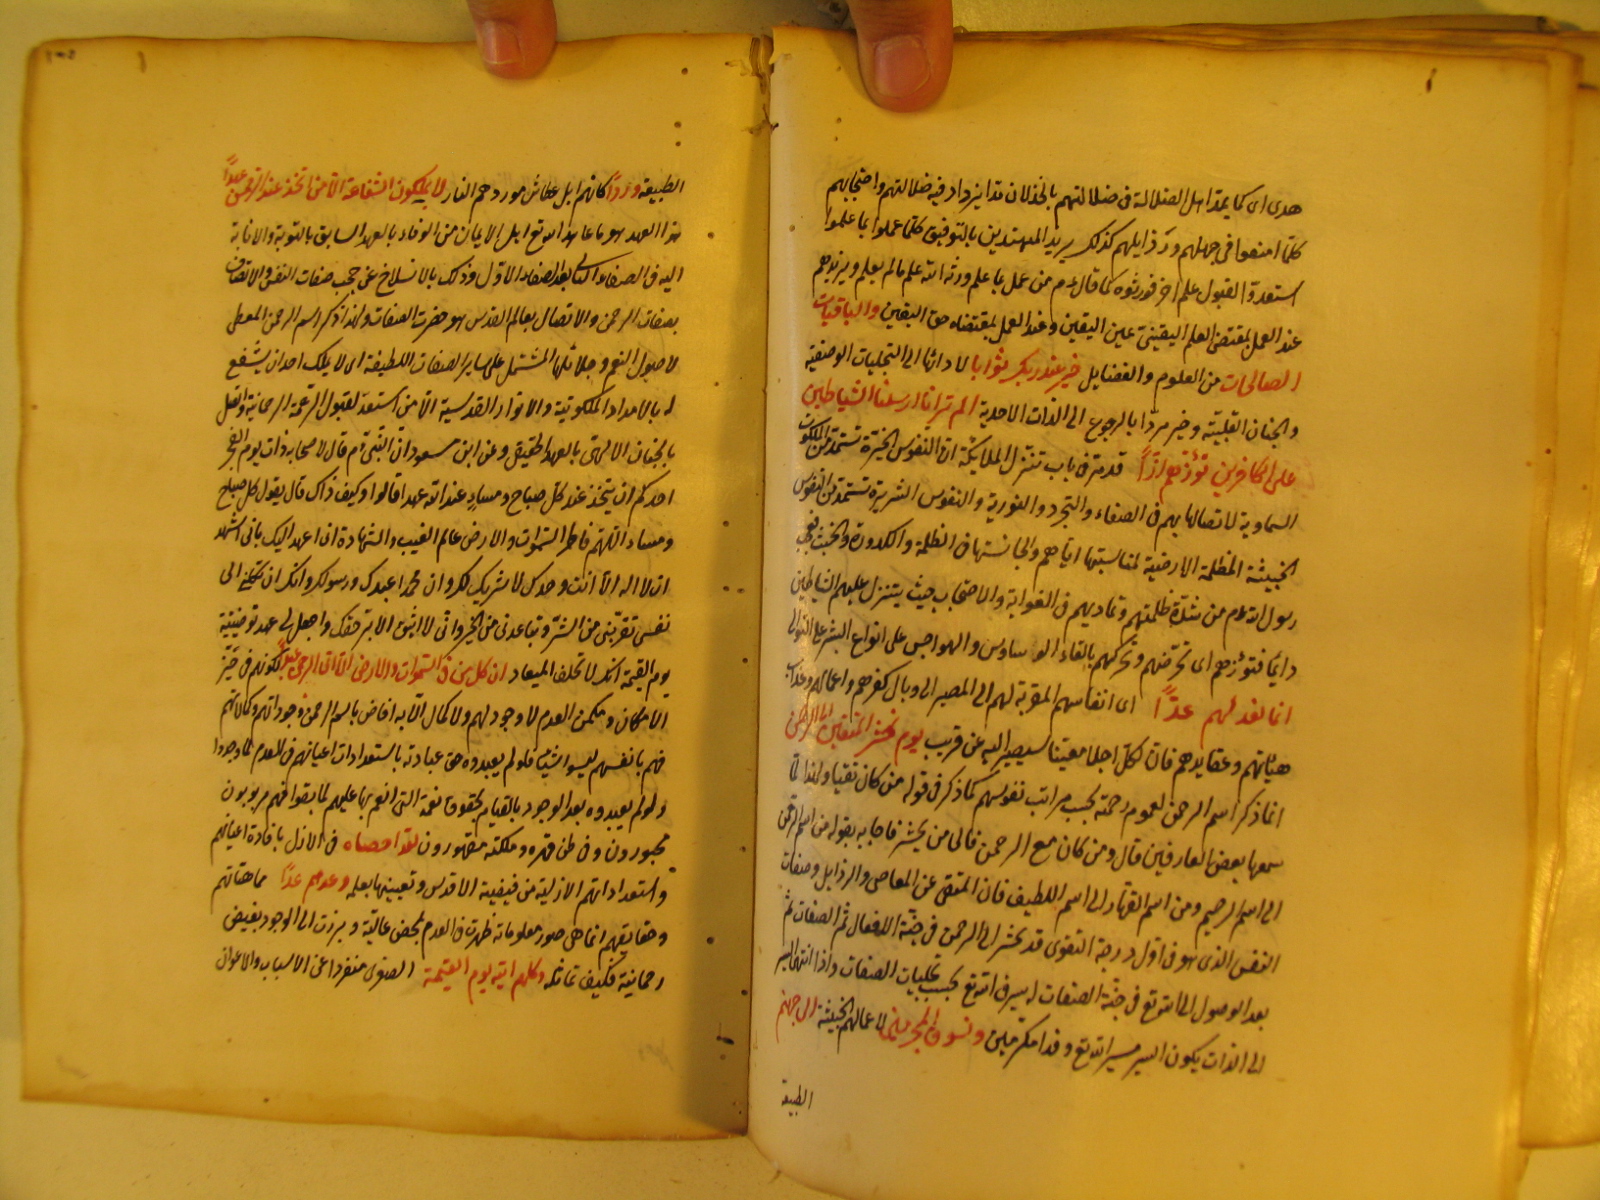 هدى اى كما يمد اهل الضلالة فى ضلالتهم بالخذلان مدا يزداد فيه ضلالتهم واحتجابهم
كلما امعنوا فى جهلهم ورذايلهم كذلك يزيد المهتدين بالتوفيق كلما عملوا بما علموا
استعدوا لقبول علم اخر فورثوه كما قال عم من عمل بما علم ورثه الله علم ما لم يعلم ويزيدهم
عند العمل بمقتضى العلم اليقينى عين اليقين وعند العمل بمقتضاه حق اليقين والباقيات
الصالحات من العلوم والفضايل خير عند ربك ثوابا لادائها الى التجليات الوصفية
والجنان القلبية وخير مردا بالرجوع الى الذات الاحدية الم تر انا ارسلنا الشياطين
على الكافرين تؤزهم ازا قد مر فى باب تنزل الملايكة ان النفوس الخيرة تستمد من الملكوت
السماوية لاتصالها بهم فى الصفاء والتجرد والنورية والنفوس الشريرة تستمد من النفوس
الخبيثة المظلمة الارضية لمناسبتها اياهم والمجانستها فى الظلمة والكدورة والخبث فعجب
رسول الله عم من شدة ظلمتهم وتماديهم فى الغواية والاحتجاب حيث يتنزل عليهم الشياطين
دايما فتؤزهم اى تحرضهم وتحركهم بالقاء الوساوس والهواجس على انواع الشر على التوالى
انما نعد لهم عدا اى انفاسهم المقربة لهم الى المصير الى وبال كفرهم واعمالهم وعذاب
هيئاتهم وعقايدهم فان لكل اجلا معينا سيصير اليه عن قريب يوم نحشر المتقين الى الرحمن
انما ذكر اسم الرحمن لعموم رحمته بحسب مراتب نفوسهم كما ذكر فى قوله من كان تقيا ولهذا لما
سمعها بعض العارفين قال ومن كان مع الرحمن فالى من يحشر فاجابه بقوله من اسم الرحمن
الى اسم الرحيم ومن اسم القهار الى اسم اللطيف فان المتقى عن المعاصى والرذايل وصفات
النفس الذى هو فى اول درجة التقوى قد يحشر الى الرحمن فى جنة الافعال ثم الصفات ثم
بعد الوصول الى الله تع فى جنة الصفات له سير فى الله تع بحسب تجليات الصفات واذا انتهى السير
الى الذات يكون السير سير الله تع وفدا مكرمين ونسوق المجرمين لاعمالهم الخبيثة الى جهنم
الطبيعة
الطبيعة وردا كانهم ابل عطاش موردهم النار لا يملكون الشفاعة الا من اتخذ عند الرحمن عهدا
هذا العهد هو ما عاهد الله تع اهل الايمان من الوفاء بالعهد السابق بالتوبة والانابة
اليه فى الصفاء الثانى بعد الصفاء الاول وذلك بالانسلاخ عن حجب صفات النفس والاتصاف
بصفات الرحمن والاتصال بعالم القدس هو حضرت الصفات ولهذا ذكر اسم الرحمن المعطى
لاصول النعم وجلائلها المشتمل على ساير الصفات اللطيفة اى لا يملك احد ان يشفع
له بالامداد الملكوتية والانوار القدسية الا من استعد لقبول الرحمة الرحمانية واتصل
بالجناب الالهى بالعهد الحقيقى وعن ابن مسعود ان النبى م قال لاصحابه ذات يوم ايعجز
احدكم ان يتخذ عند كل صباح ومساء عند الله عهدا قالوا وكيف ذاك قال يقول كل صباح
ومساء اللهم فاطر السموات والارض عالم الغيب والشهادة انى اعهد اليك بانى اشهد
ان لا اله الا انت وحدك لا شريك لك وان محمدا عبدك ورسولك وانك ان تكلنى الى
نفسى تقربنى من الشر وتباعدنى من الخير وانى لا اثق الا برحمتك واجعل لى عهدا توفينيه
يوم القيمة انك لا تخلف الميعاد ان كل من فى السموات والارض الا اتى الرحمن عبدا لكونهم فى حيز
الامكان ومكمن العدم لا وجود لهم ولا كمال الا به افاض باسم الرحمن وجوداتهم وكمالاتهم
فهم بانفسهم ليسوا شيئا فلو لم يعبدوه حق عبادته باستعدادات اعيانهم فى العدم لما وجدوا
ولو لم يعبدوه بعد الوجود بالقيام بحقوق نعمه التى انعم بها عليهم لما بقوا فهم مربوبون
مجبورون وفى طى قهره وملكته مقهورون لقد احصاه فى الازل بافادة اعيانهم
واستعداداتهم الازلية من فيضه الاقدس وتعيينها بعلمه وعدهم عدا مما هياتهم
وحقايقهم انما هى صور معلوماته ظهرت فى العدم بمحض عالميته وبرزت الى الوجود بفيض
رحمانيته فكيف تماثله وكلهم اتيه يوم القيمة الصغرى منفردا عن الاسباب والاعوان